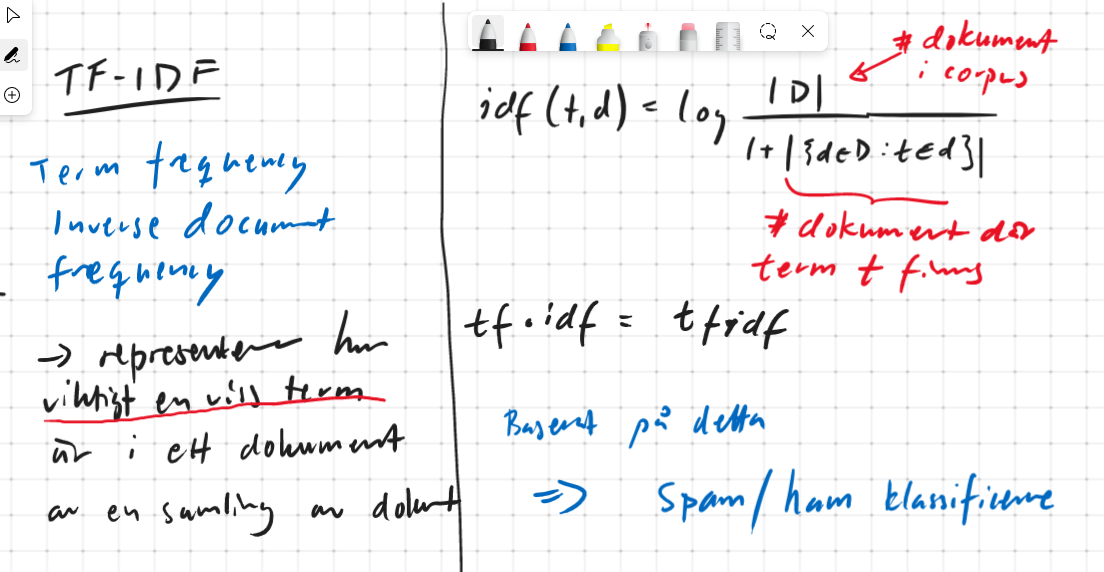 TF-IDF
Term frequency
Inverse document
frequency
→ representerar hur
viktigt en viss term
är i ett dokument
av en samling av dokumt
# dokument
i corpus
idf (t,d) = log |D| / 1 + |{d∈D : t∈d}|
# dokument där
term t finns
tf · idf = tfidf
Baserat på detta
⇒ Spam/ham klassificerare